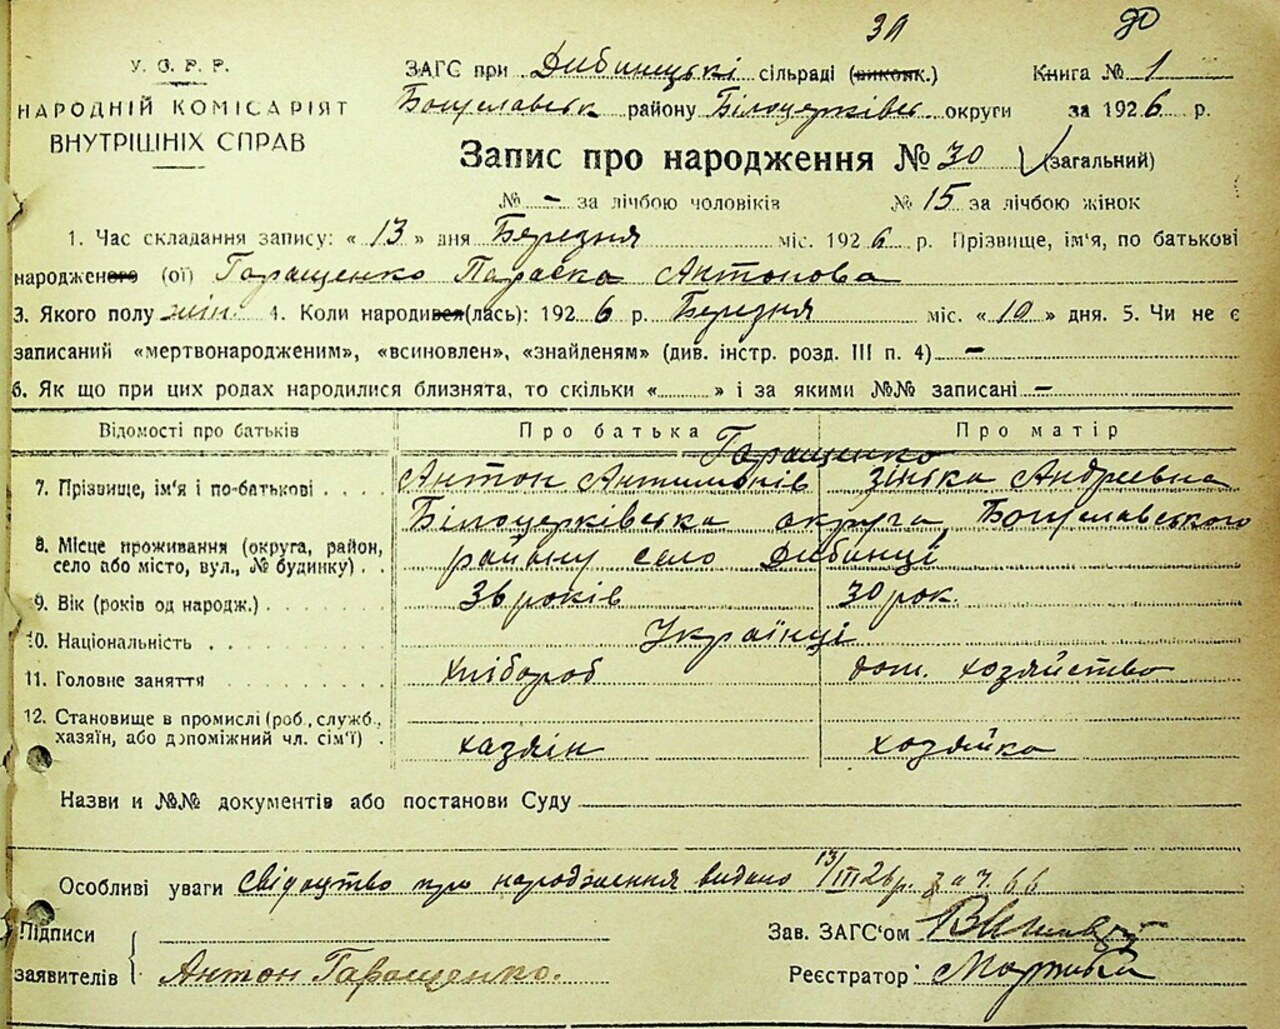 30
У. С. Р. Р.
НАРОДНІЙ КОМІСАРІЯТ
ВНУТРІШНІХ СПРАВ
ЗАГС при Дибинецькі сільраді (виконк.) Книга № 1
Богуславськ району Білоцерківськ округи за 1926 р.
Запис про народження № 30 (загальний)
№ - за лічбою чоловіків № 15 за лічбою жінок
1. Час складання запису: « 13 » дня Березня міс. 1926 р. Прізвище, ім'я, по батькові
народженого (ої) Гаращенко Параска Антонова
3. Якого полу жін. 4. Коли народився(лась): 1926 р. Березня міс. « 10 » дня. 5. Чи не є
записаний «мертвонародженим», «всиновлен», «знайденям» (див. інстр. розд. III п. 4) -
6. Як що при цих родах народилися близнята, то скільки « » і за якими №№ записані -
Відомості про батьків Про батька Про матір
Гаращенко
7. Прізвище, ім'я і по-батькові Антон Антимонів Зінька Андреевна
Білоцерківська округа, Богуславського
8. Місце проживання (округа, район,
село або місто, вул., № будинку) району село Дибинці
9. Вік (років од народж.) 36 років 30 рок.
10. Національність Українці
11. Головне заняття хлібороб дом. хозяйство
12. Становище в промислі (роб., служб.,
хазяїн, або допоміжний чл. сім'ї) хазяін хозяйка
Назви и №№ документів або постанови Суду
Особливі уваги свідоцтво про народження видано 13/III 26 р. за ч. 66
Підписи Зав. ЗАГС'ом
заявителів Антон Гаращенко. Реєстратор: